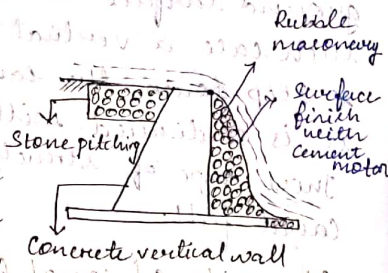 Rubble
masonery
Surface
finish
with
cement
motor
Stone pitching
Concrete vertical wall